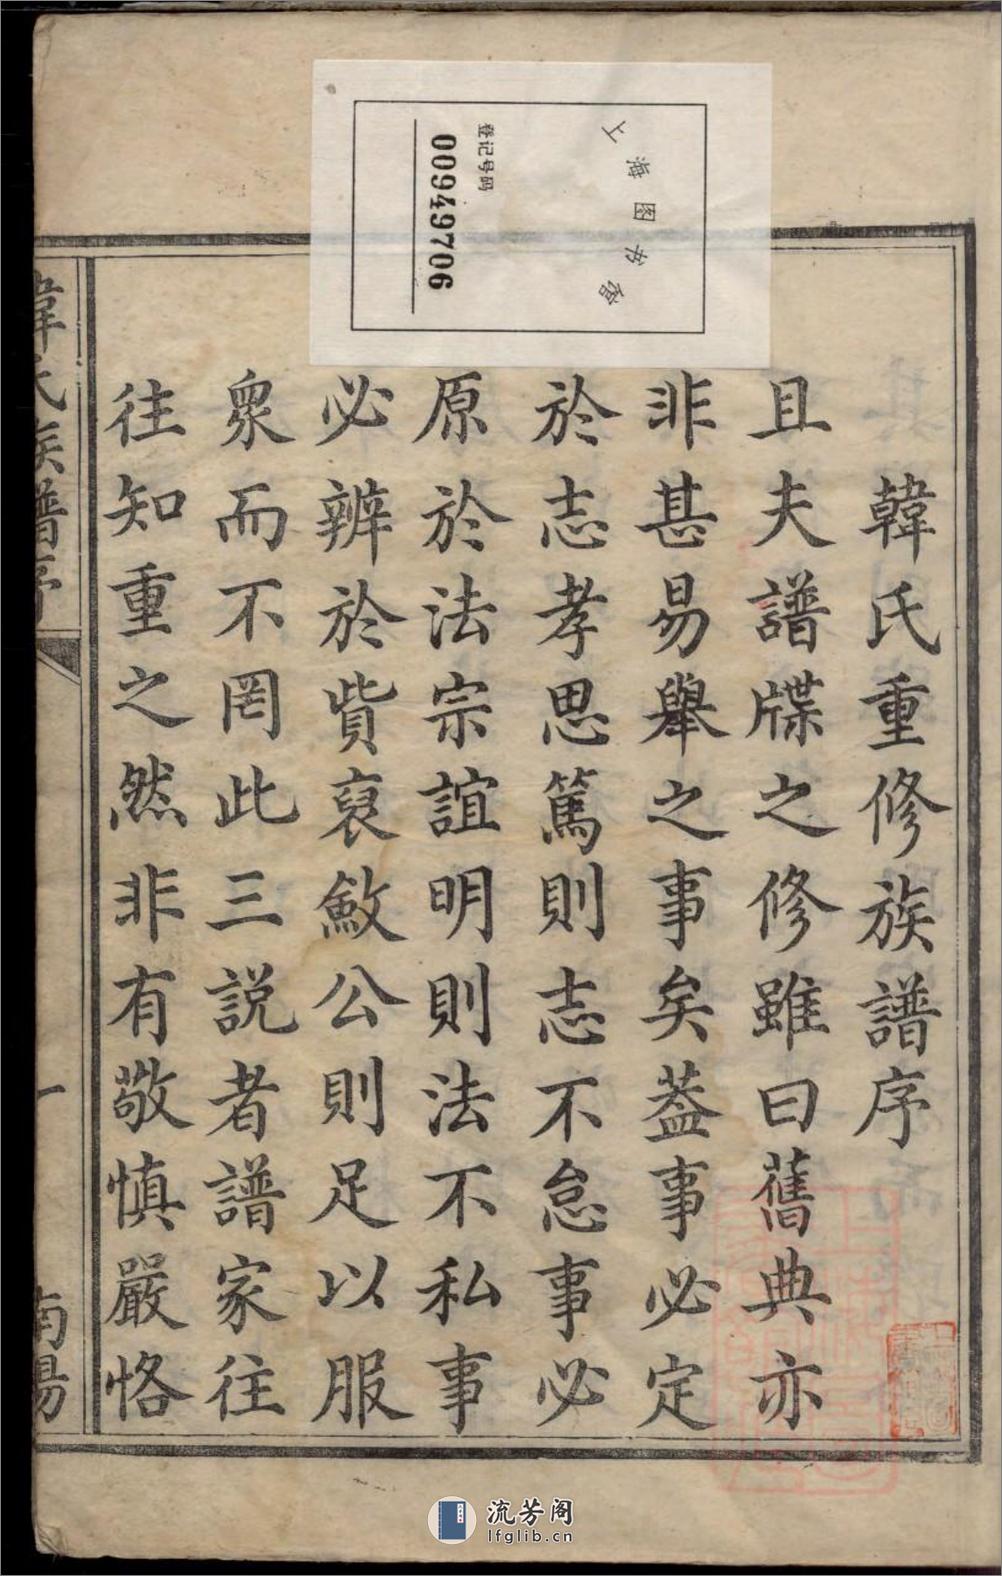 上海图书馆
登记号码
00949706
韓氏重修族譜序
且夫譜牒之修雖曰舊典亦
非甚易舉之事矣葢事必定
於志孝思篤則志不怠事必
原於法宗誼明則法不私事
必辨於貲裒斂公則足以服
衆而不罔此三説者譜家往
往知重之然非有敬慎嚴恪
韓氏族譜序
一
南陽
流芳阁
lfglib.cn